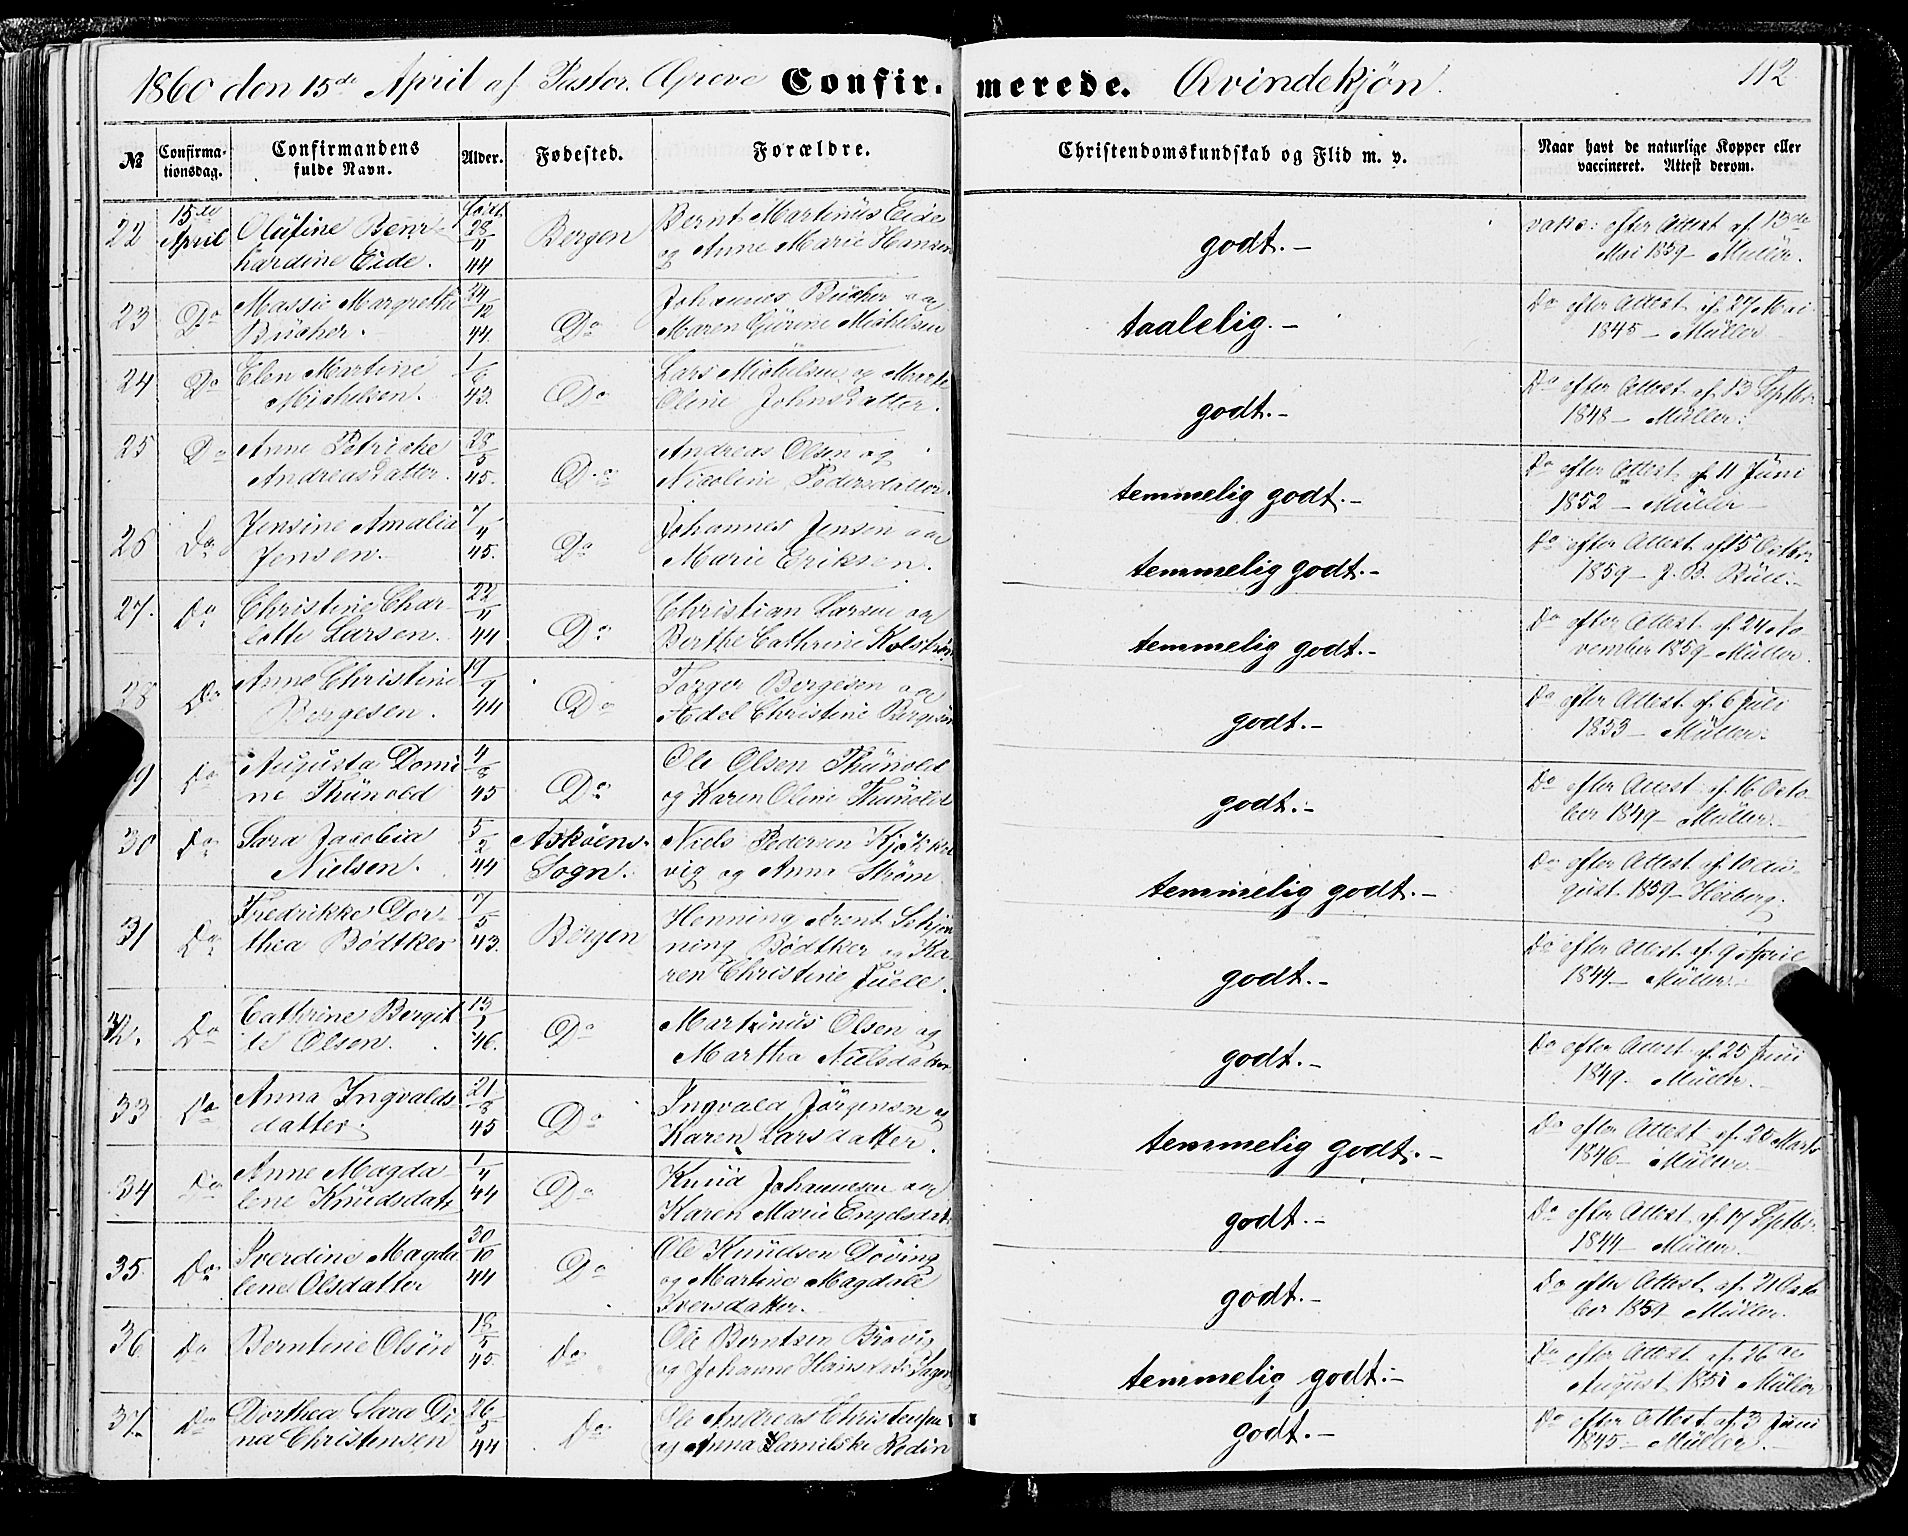 1860 den 15de April af Pastor Greve Confirmerede. Qvindekjøn. 112
№ Confirmationsdag. Confirmandens fulde Navn. Alder. Fødested. Forældre. Christendomskundskab og Flid m. v. Naar havt de naturlige Kopper eller vaccineret. Attest derom.
22 15de April Olüfine Bernhardine Eide. født 28/11 44 Bergen Bernt Martinüs Eide og Anne Marie Hansen godt.- vakc: efter Attest af 13de Mai 1859 Müller.
23 Do Massie Margrethe Bücher. 24/12 44. Do Johannes Bücher og Maren Gürine Michelsen taalelig.- Do efter Attest af 27 Mai 1845 - Müller
24 Do Elen Martine Michelsen. 1/6 43. Do Lars Michelsen og Marte Oline Johnsdatter. godt.- Do efter Attest af 13 Septbr. 1848 - Müller.
25 Do Anne Petricke Andreasdatter. 28/3 45. Do Andreas Olsen og Nicoline Pedersdatter. temmelig godt.- Do efter Attest af 11 Jüni 1852 - Müller -
26 Do Jensine Amalia Jensen. 7/4 45. Do Johannes Jensen og Marie Eriksen. temmelig godt.- Do efter Attest af 15 Octbr. 1859 - J. B. Büll.-
27. Do Christine Charlotte Larsen. 22/11 44. Do Christian Larsen og Berthe Cathrine temmelig godt.- Do efter Attest af 24 November 1859 - Müller.
28 Do Anne Christine Bergesen. 19/9 44 Do Torger Bergesen og Adel Christine Bergesen godt.- Do efter Attest af 6 Jüli 1853 - Müller.
9 Do Augusta Domine Thünold 4/8 45 Do Ole Olsen Thünold og Karen Oline Thünold godt.- Do efter Attest af 16 October 1849 - Müller.
30 Do Sara Jacobia Nielsen. 5/2 44 Askøens Sogn. Niels Pedersen og Anne Strøm temmelig godt.- Do efter Attest af 10 August 1859 - Heiberg.
31 Do Fredrikke Dorthea Bødtker 7/5 43. Bergen Henning Arent Schjønning Bødtker og Karen Christine Juell. godt.- Do efter Attest af 9 April 1844 - Müller.
32. Do Cathrine Bergitte Olsen. 13/1 46. Do Martinüs Olsen og Martha Nielsdatter godt.- Do efter Attest af 25 Juni 1849. Müller.
33 Do Anna Ingvaldsdatter. 21/8 45 Do Ingvald Jørgensen og Karen Larsdatter. temmelig godt.- Do efter Attest af 20 Marts 1846 - Müller.
34 Do Anne Magdalene Knüdsdatt 1/4 44 Do Knüd Johannesen og Karen Marie Engelsdat godt.- Do efter Attest af 17 Septbr. 1844 - Müller.
35. Do Iverdine Magdalene Olsdatter 30/10 44 Do Ole Knüdsen Døving og Martine Magdale Iversdatter. godt.- Do efter Attest af 21 October 1859 Müller.
36 Do Berntine Olsen 18/5 45. Do Ole Berntsen og Johanne temmelig godt.- Do efter Attest af 26 August 1851 Müller
37. Do Dorthea Sara Dina Christensen 26/3 44 Do Ole Andreas Christensen og Anna godt.- Do efter Attest af 3 Jüni 1845 - Müller.-